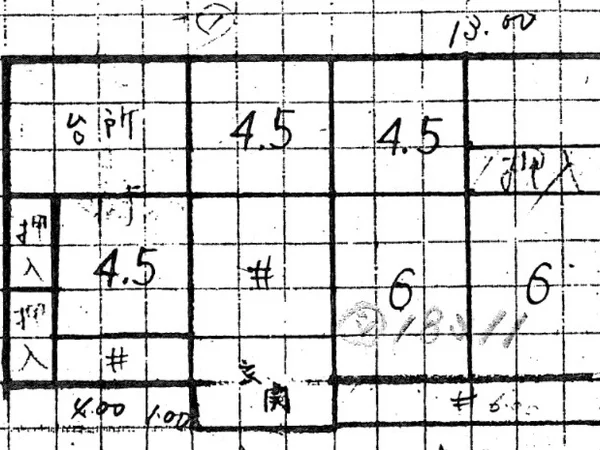 ①
13.00
台所
4.5
4.5
押入
押入
4.5
#
6
6
押入
#
玄関
4.00 1.00
# 6.00